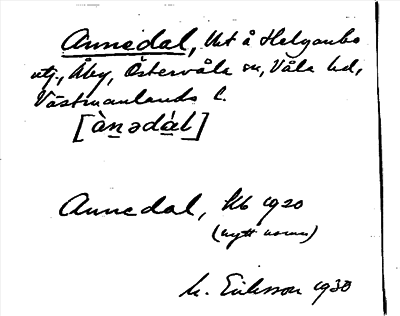 Annedal, lht å Helganbo
utj., Åby, Östervåla sn, Våla hd,
Västmanlands l.
[ànǝdál]
Annedal, kb 1920
(nytt namn)
M. Eriksson 1930